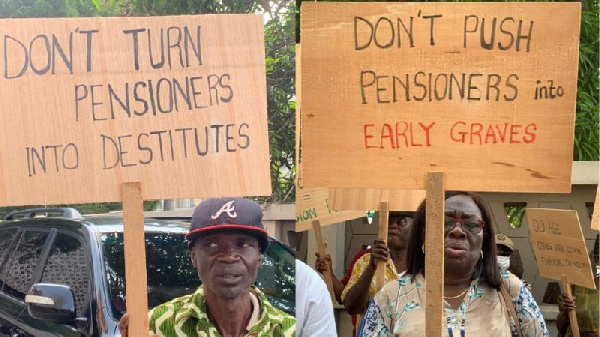 DON'T TURN
PENSIONERS
INTO DESTITUTES
DON'T PUSH
PENSIONERS into
EARLY GRAVES
A
OLD AGE